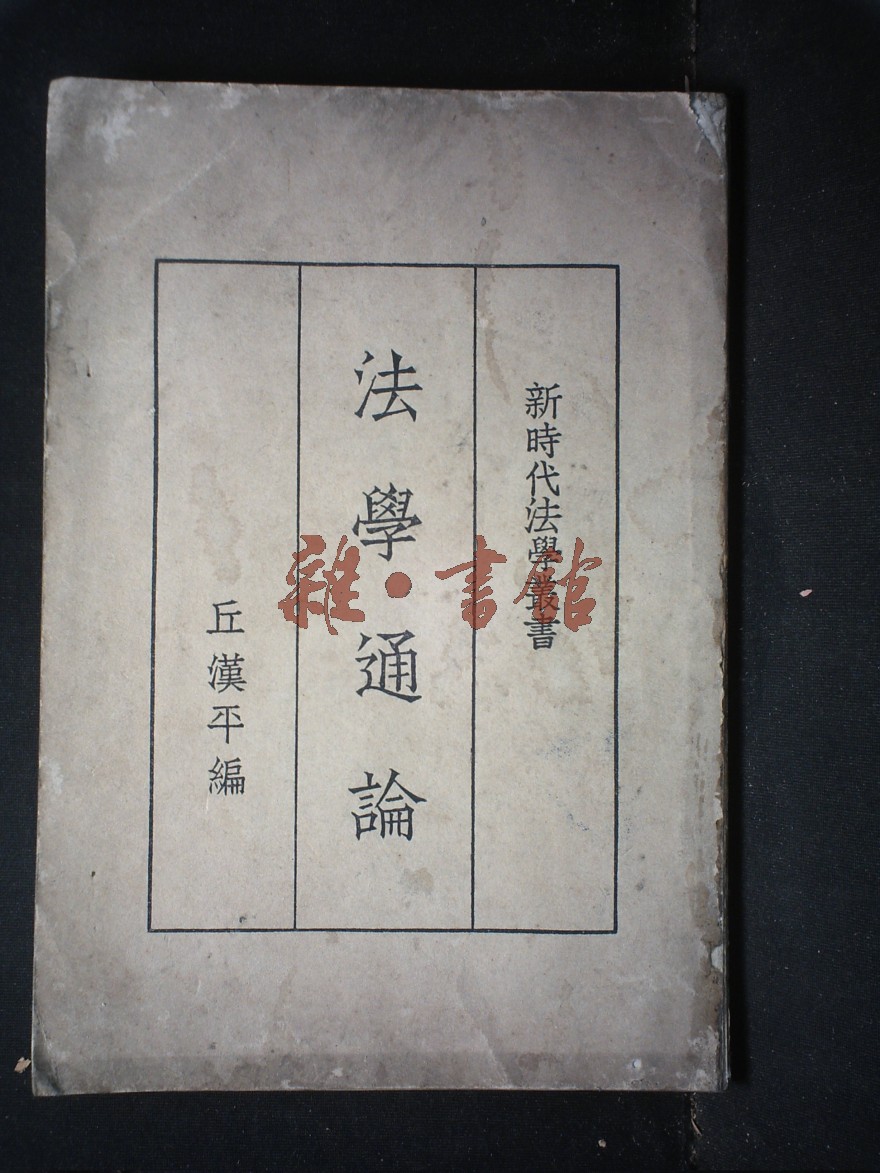 新時代法學叢書
法學通論
丘漢平編
雜·書館